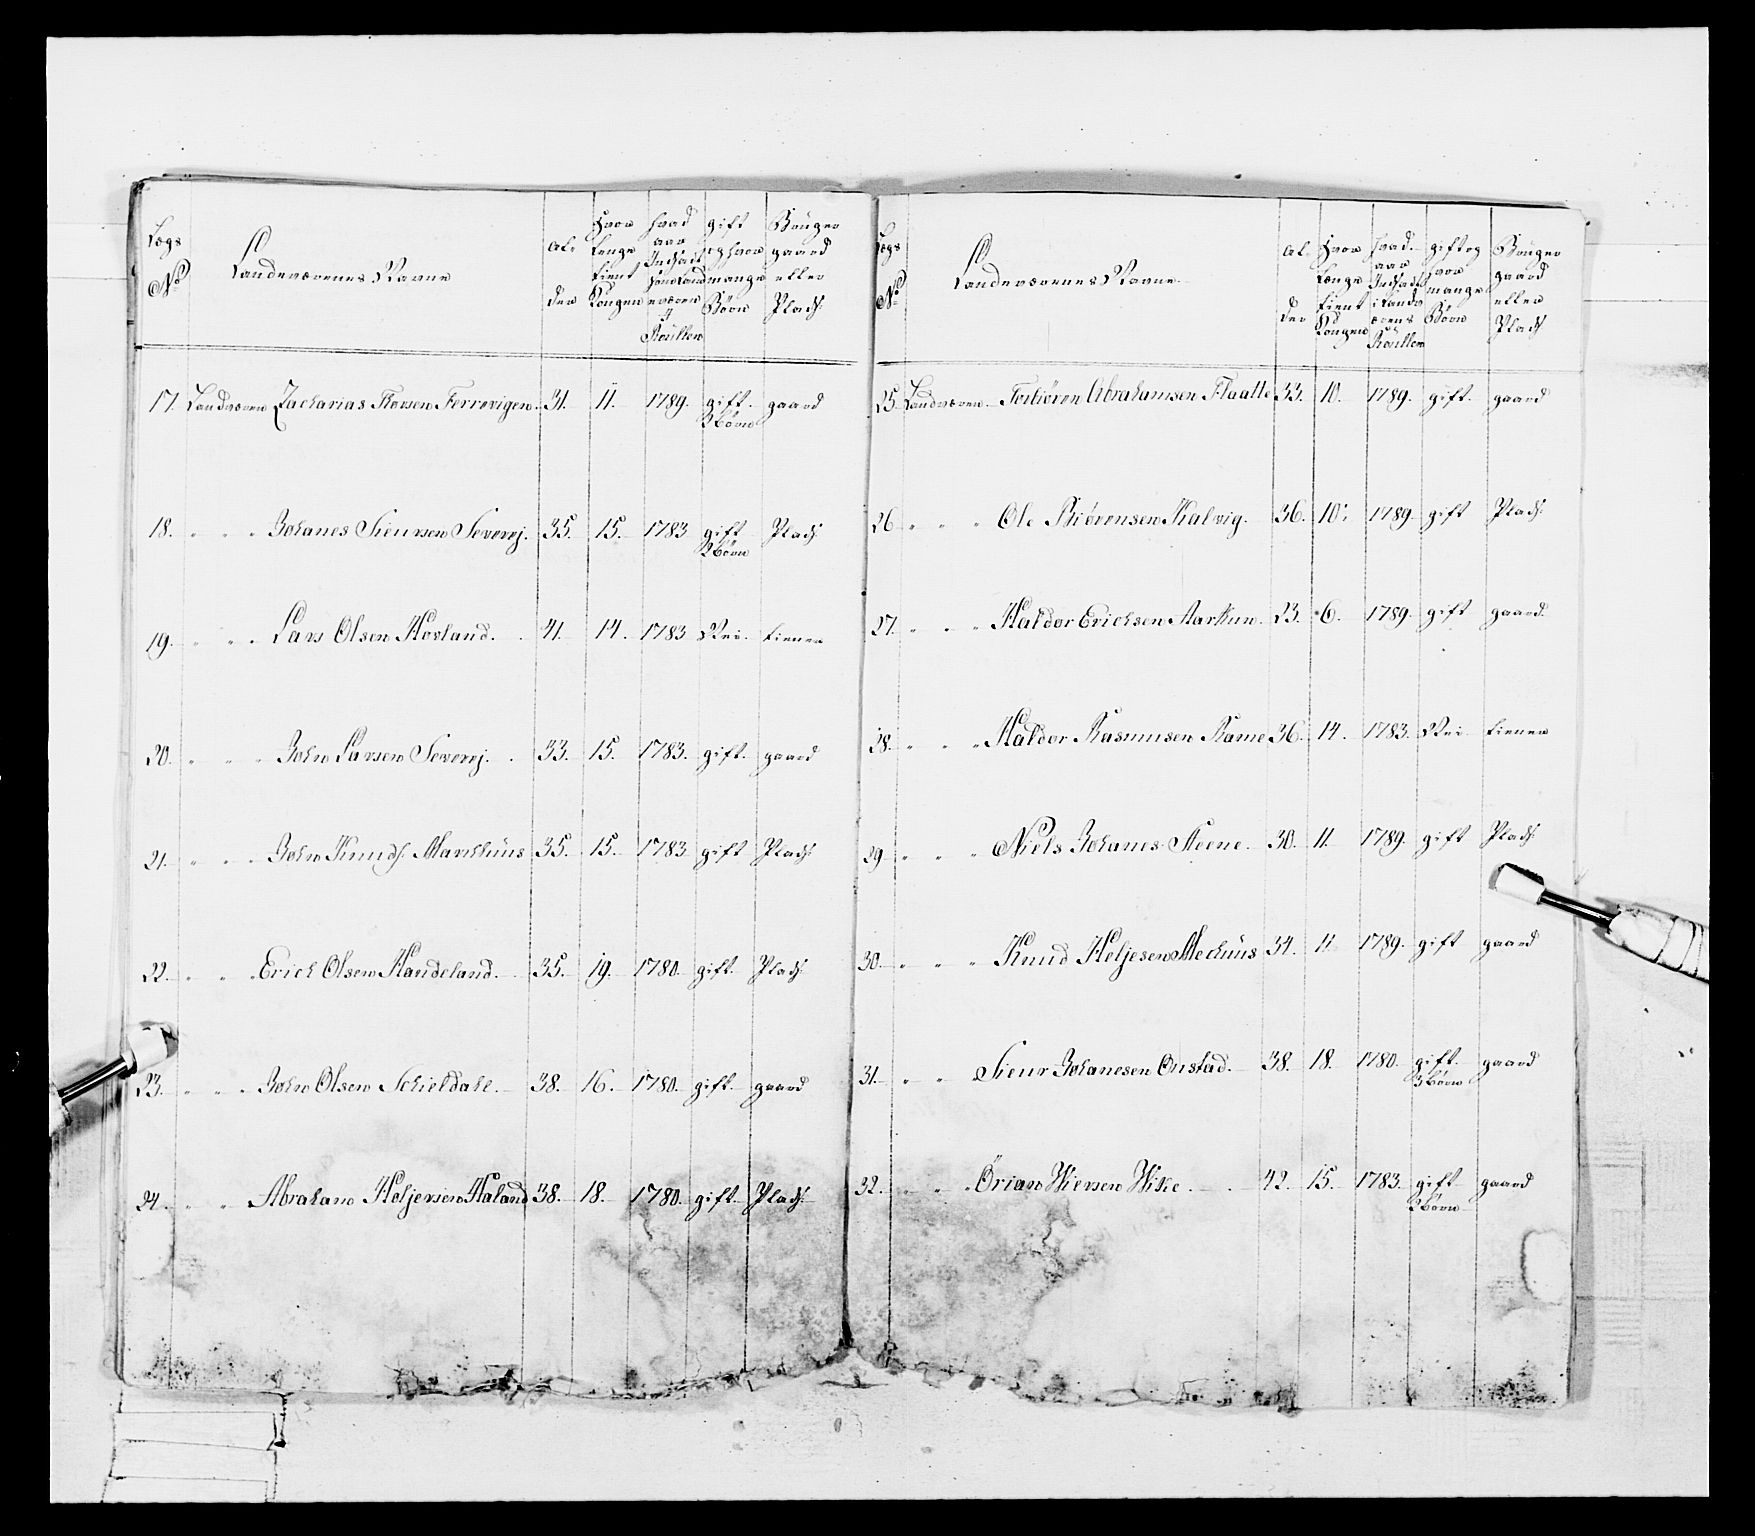 Legs No | Landeværenes Navne | Al- der | Hvor lenge tient Kongen | Hvad aar Indsat i Landeværens Roullen | gift og hvor mange Börn | Bruger gaard eller Plads
17. Landværn Zacharias Thorsen Ferrevigen. 31. 11. 1789. gift. gaard
3 Börn
18. " " " Johanes Sieursen Severej. 35. 15. 1783 gift Plads
2 Börn
19. " " " Lars Olsen Hovland. 41. 14. 1783 Nei. tiener
20. " " " John Larsen Severej. 33. 15. 1783. gift. gaard
21. " " " John Knuds. Markhuus 35. 15. 1783 gift Plads
22. " " " Erich Olsen Handeland. 35. 19. 1780. gift. Plads
23. " " " John Olsen Schieldahl. 38. 16. 1780. gift. gaard
24. " " Abraham Heljersen Haland 38. 18. 1780. gift. Plads
Legs No | Landeværenes Navne | Al- der | Hvor lenge tient Kongen | Hvad aar Indsat i Landeværens Roullen | gift og hvor mange Börn | Bruger gaard eller Plads
25. Landværen Torbiören Abrahamsen Flaatte 33. 10. 1789. gift. gaard
26 " " " Ole Biörensen Kalvig. 36. 10. 1789. gift Plads
27. " " " Haldor Erichsen Aarthun. 23. 6. 1789. gift gaard.
28. " " " Haldor Rasmusen Rame 36. 14. 1783. Nei tiener
29 " " " Niels Johanes. Steene. 30. 11. 1789. gift Plads
30. " " " Knud Heljesen Mechuus 34. 11 1789. gift gaard
31. " " Sieur Johanesen Onstad. 38. 18. 1780. gift. gaard
3 Börn
32. " " " Örian Wiersen Wike. 42. 15. 1783. gift gaard
2 Börn